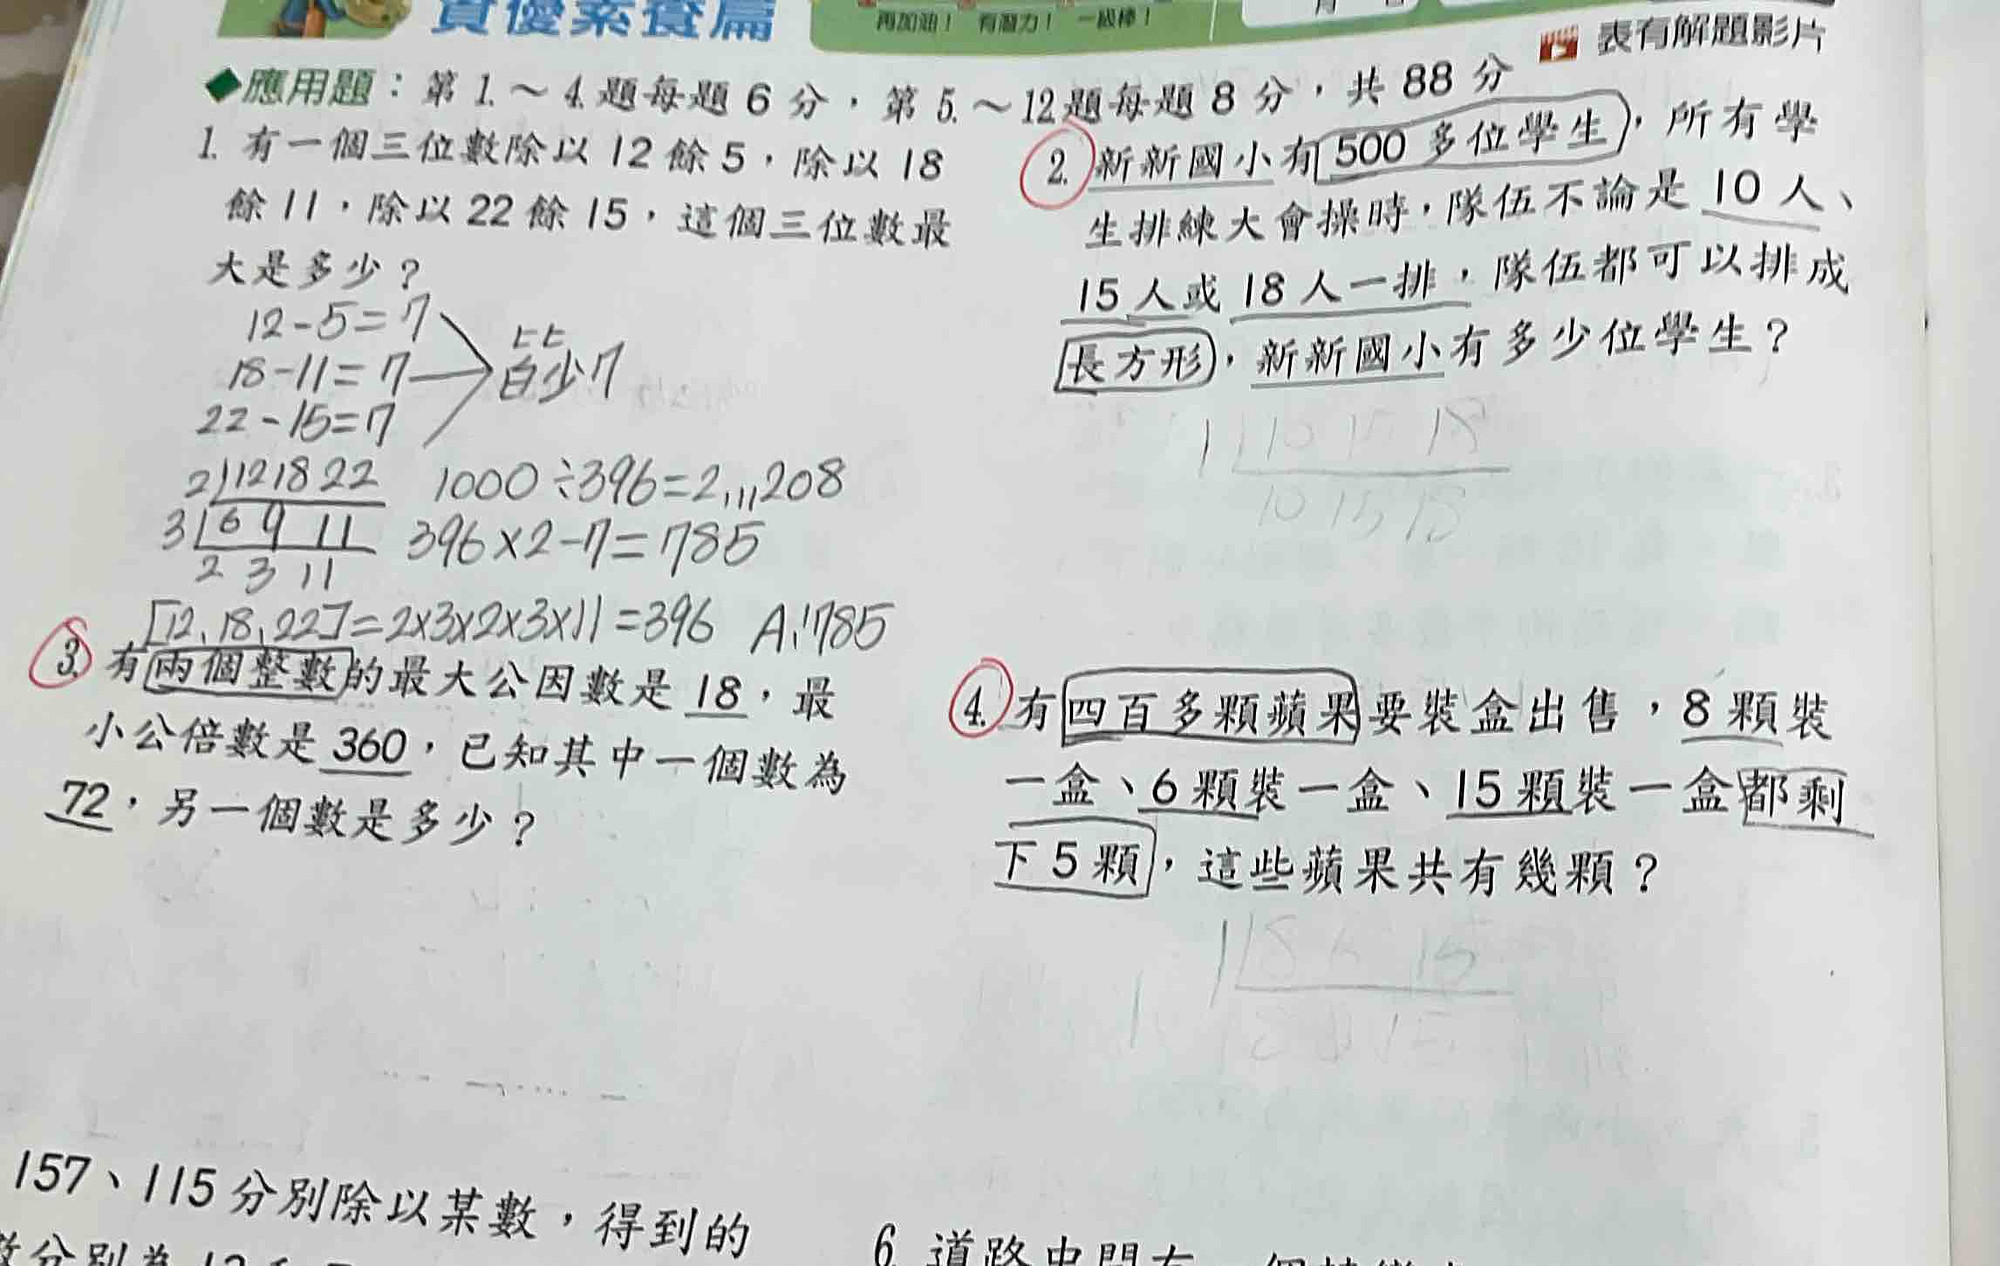 資優素養篇
再加油！ 有潛力！ 一級棒！
表有解題影片
◆應用題：第1.～4.題每題6分，第5.～12題每題8分，共88分
1. 有一個三位數除以12餘5，除以18
餘11，除以22餘15，這個三位數最
大是多少？
12-5=7
18-11=7
22-15=7
比
皆少7
2 12 18 22
3 6 9 11
2 3 11
1000÷396=2...208
396×2-7=785
[12,18,22]=2×3×2×3×11=396 A:785
2. 新新國小有500多位學生，所有學
生排練大會操時，隊伍不論是10人、
15人或18人一排，隊伍都可以排成
長方形，新新國小有多少位學生？
1 10 15 18
10 15 18
3. 有兩個整數的最大公因數是18，最
小公倍數是360，已知其中一個數為
72，另一個數是多少？
4. 有四百多顆蘋果要裝盒出售，8顆裝
一盒、6顆裝一盒、15顆裝一盒都剩
下5顆，這些蘋果共有幾顆？
1 8 6 15
157、115分別除以某數，得到的
6. 道路中間有一個